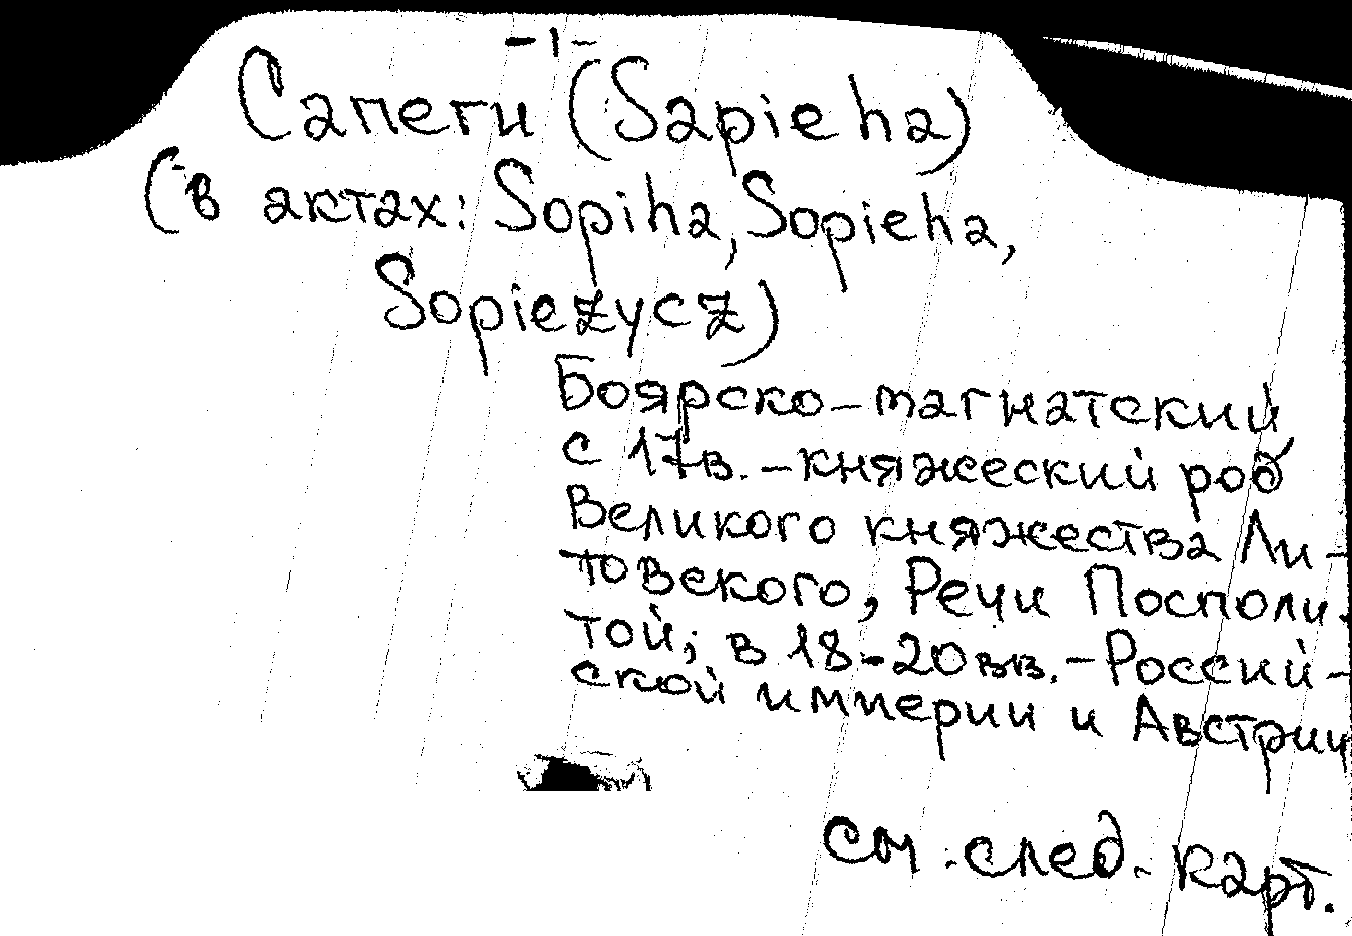 -1-
Сапеги (Sapieha)
(в актах: Sopiha, Sopieha,
Sopiezycz)
Боярско-магнатский
с 17в. - княжеский род
Великого княжества Ли-
товского, Речи Посполи-
той; в 18-20 вв. - Россий-
ской империи и Австрии
см. след. карт.